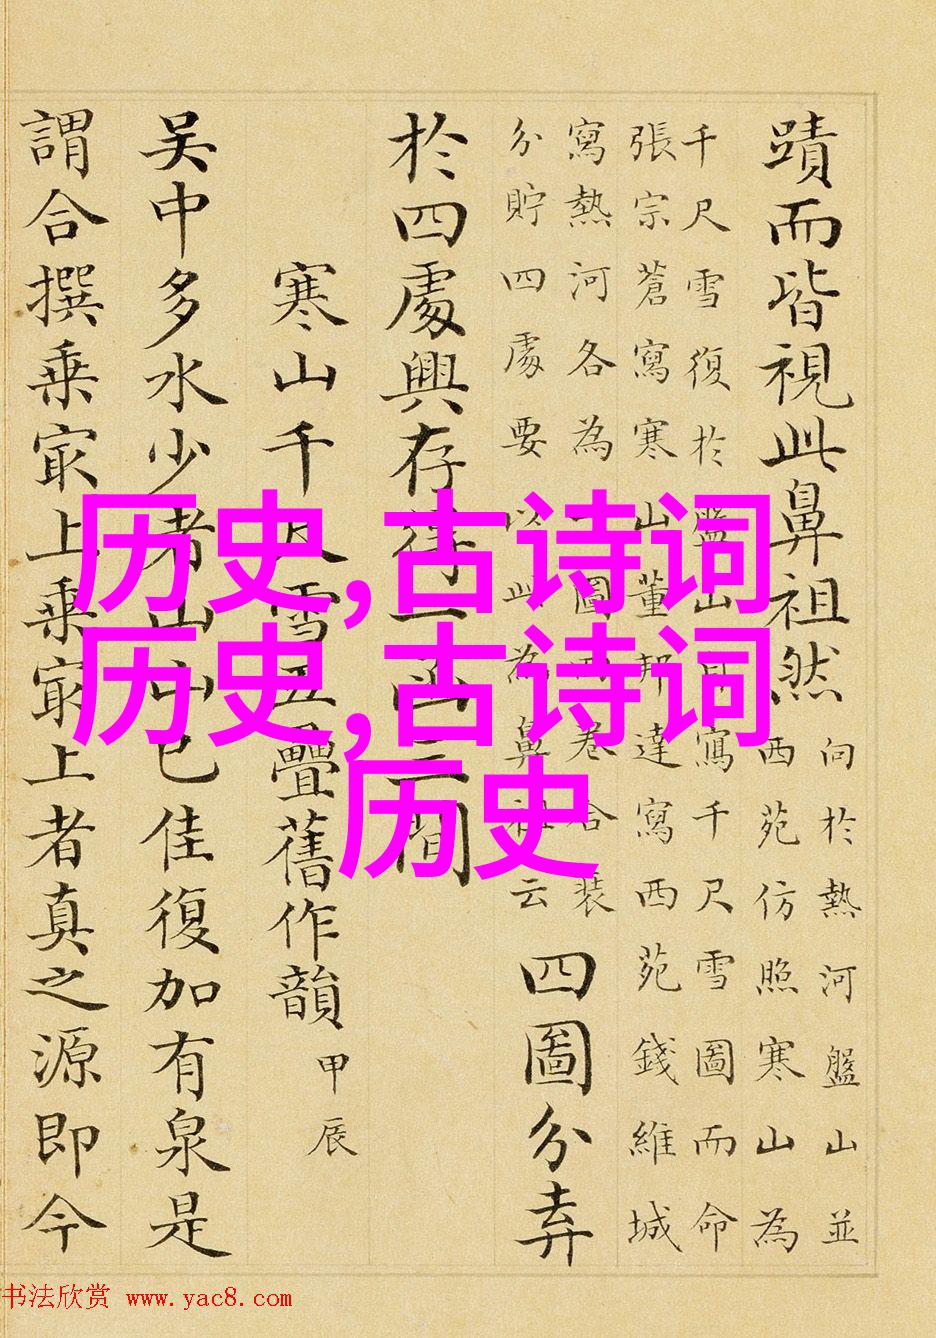 蹟而皆視此鼻祖然
向於熱河盤山並
西苑仿照寒山為
千尺雪復於盤山寫千尺雪圖而命
張宗蒼寫寒山董邦達寫西苑錢維城
寫熱河各為一圖卷合裝
分貯四處要以此為鼻祖云
四圖分弆
於四處興存得一三閒
寒山千尺雪五疊舊作韻
甲辰
吳中多水少者山山已佳復加有泉是
謂合撰乘㝡上乘㝡上者真之源即今
历史,古诗词
历史,古诗词
历史
书法欣赏 www.yac8.com